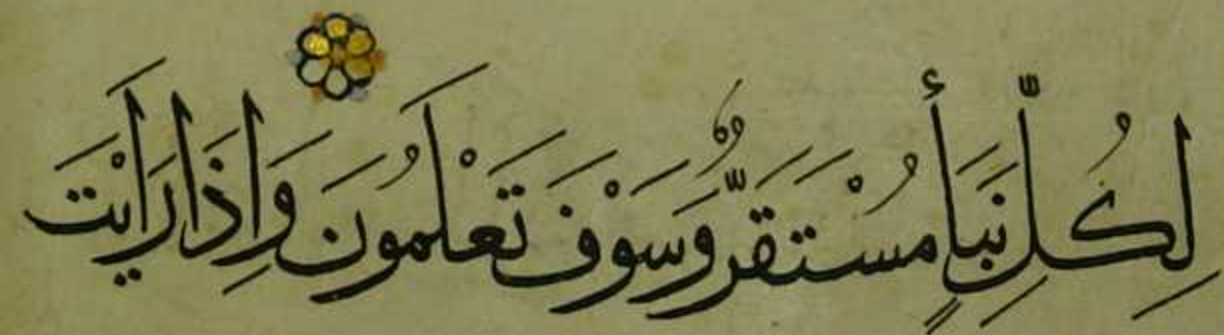 لِكُلِّ نَبَأٍ مُسْتَقَرٌّ وَسَوْفَ تَعْلَمُونَ وَاِذَا رَاَيْتَ